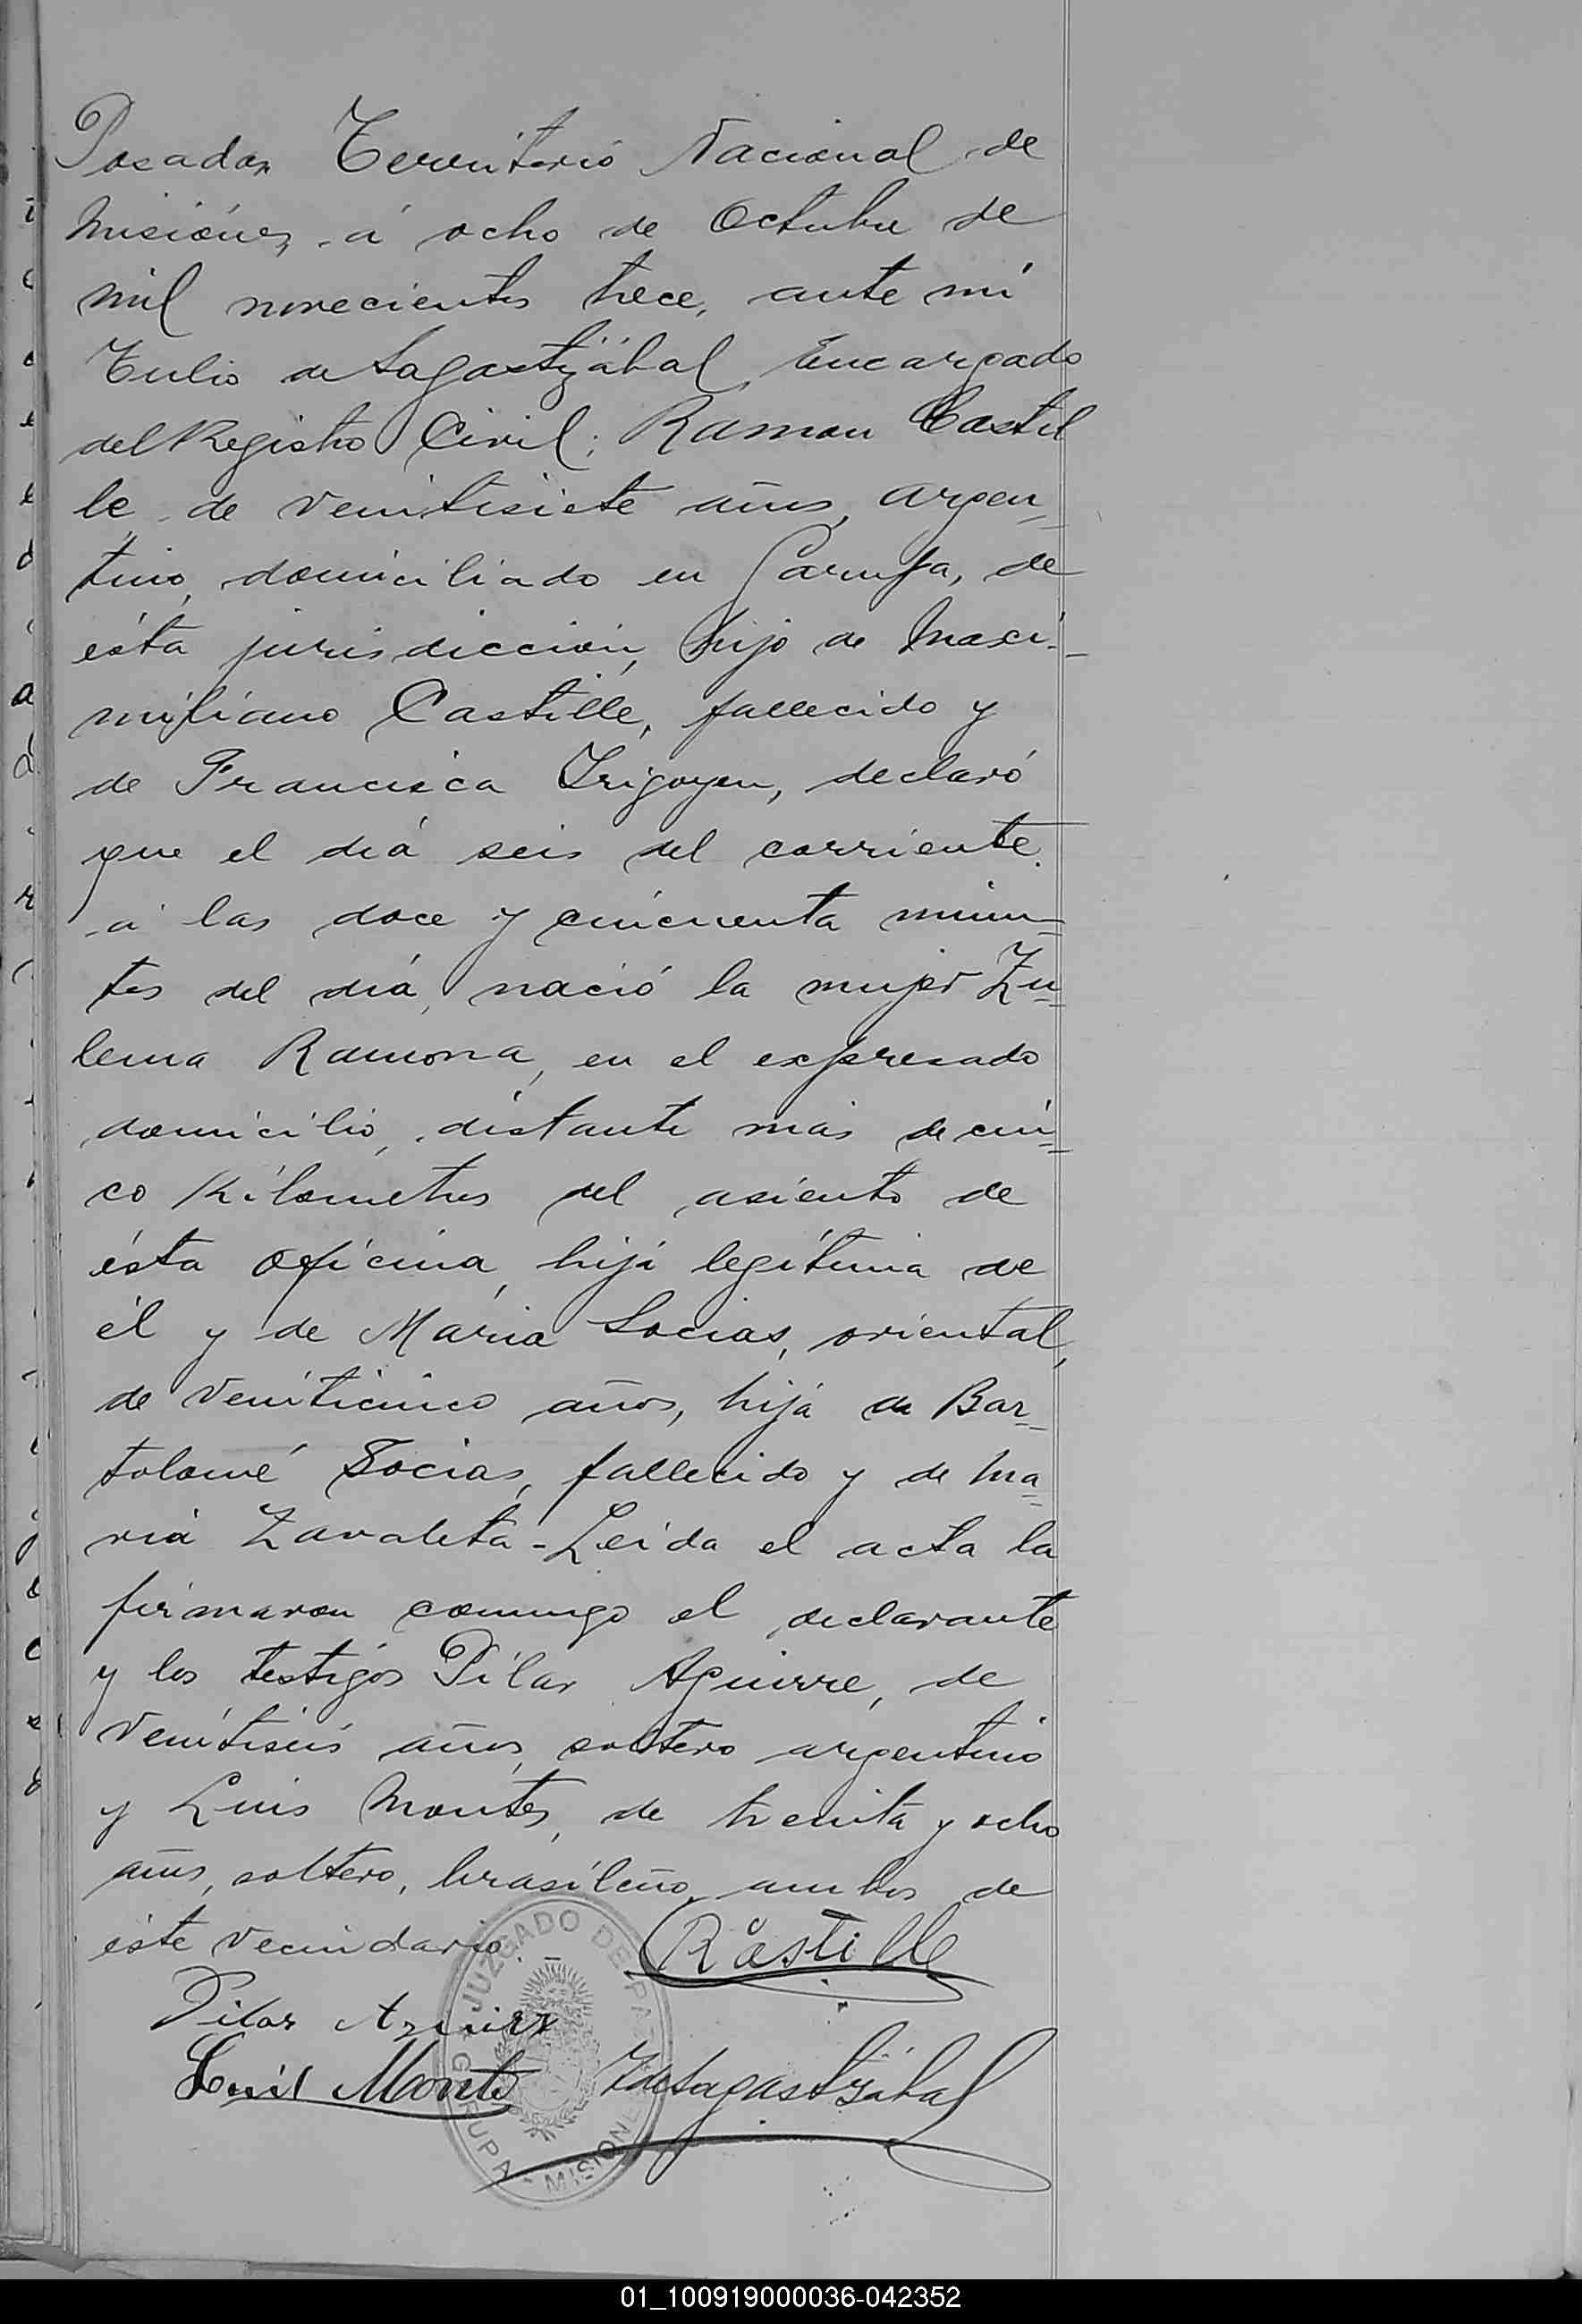 Posadas Territorio Nacional de
Misiónes, á ocho de Octubre de
mil novecientos trece, ante mí
Tulio de Lagastizábal, Encargado
del Registro Civil; Ramon Castil
le, de veintisiete años, argen=
tino, domiciliado en Garupa, de
ésta jurisdicción, hijo de Masci=
miliano Castille, fallecido y
de Francisca Irigoyen, declaró
que el diá seis del corriente
á las doce y cincuenta minu=
tos del diá, nació la mujer Zu=
lema Ramona, en el expresado
domicilio, distante más de cin=
co Kilometros del asiento de
ésta oficina, hija legítima de
él y de Maria Socias, oriental,
de veinticinco años, hija de Bar=
tolomé Socias, fallecido y de Ma=
ria Zavaleta - Leida el acta la
firmaron conmigo el declarante
y los testigos Pilar Aguirre, de
veintiseis años, soltero argentino
y Luis Montes, de treinta y ocho
años, soltero, brasileño, ambos de
éste vecindario. -
R Castille
Pilar Aguirre
Luis Monte
T de Lagastizábal
JUZGADO DE PAZ
GARUPA - MISIONES
01_100919000036-042352